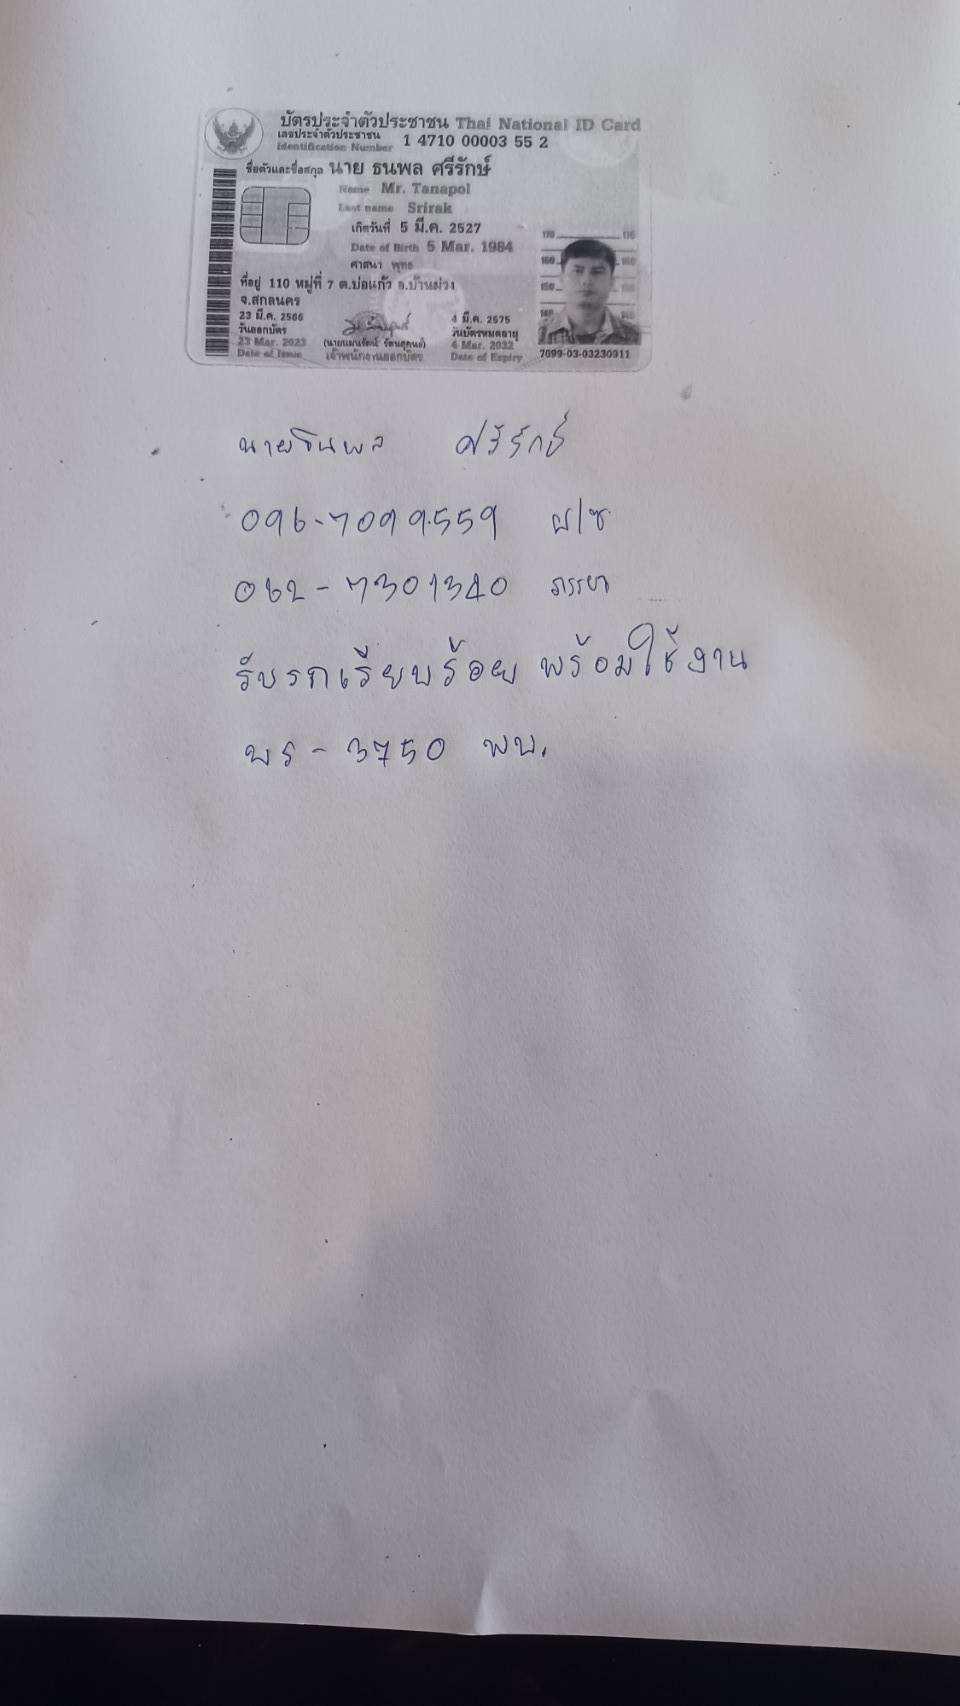 บัตรประจำตัวประชาชน Thai National ID Card
เลขประจำตัวประชาชน
Identification Number 1 4710 00003 55 2
ชื่อตัวและชื่อสกุล นาย ธนพล ศรีรักษ์
Name Mr. Tanapol
Last name Srirak
เกิดวันที่ 5 มี.ค. 2527
Date of Birth 5 Mar. 1984
ศาสนา พุทธ
ที่อยู่ 110 หมู่ที่ 7 ต.บ่อแก้ว อ.บ้านม่วง
จ.สกลนคร
23 มี.ค. 2566
วันออกบัตร
23 Mar. 2023
Date of Issue
เจ้าพนักงานออกบัตร
4 มี.ค. 2575
วันบัตรหมดอายุ
4 Mar. 2032
Date of Expiry
7099-03-03230911
นายธนพล ศรีรักษ์
096-7099559 ผ/ซ
062-7301340 ภรรยา
รับรถเรียบร้อย พร้อมใช้งาน
บร-3750 พบ.